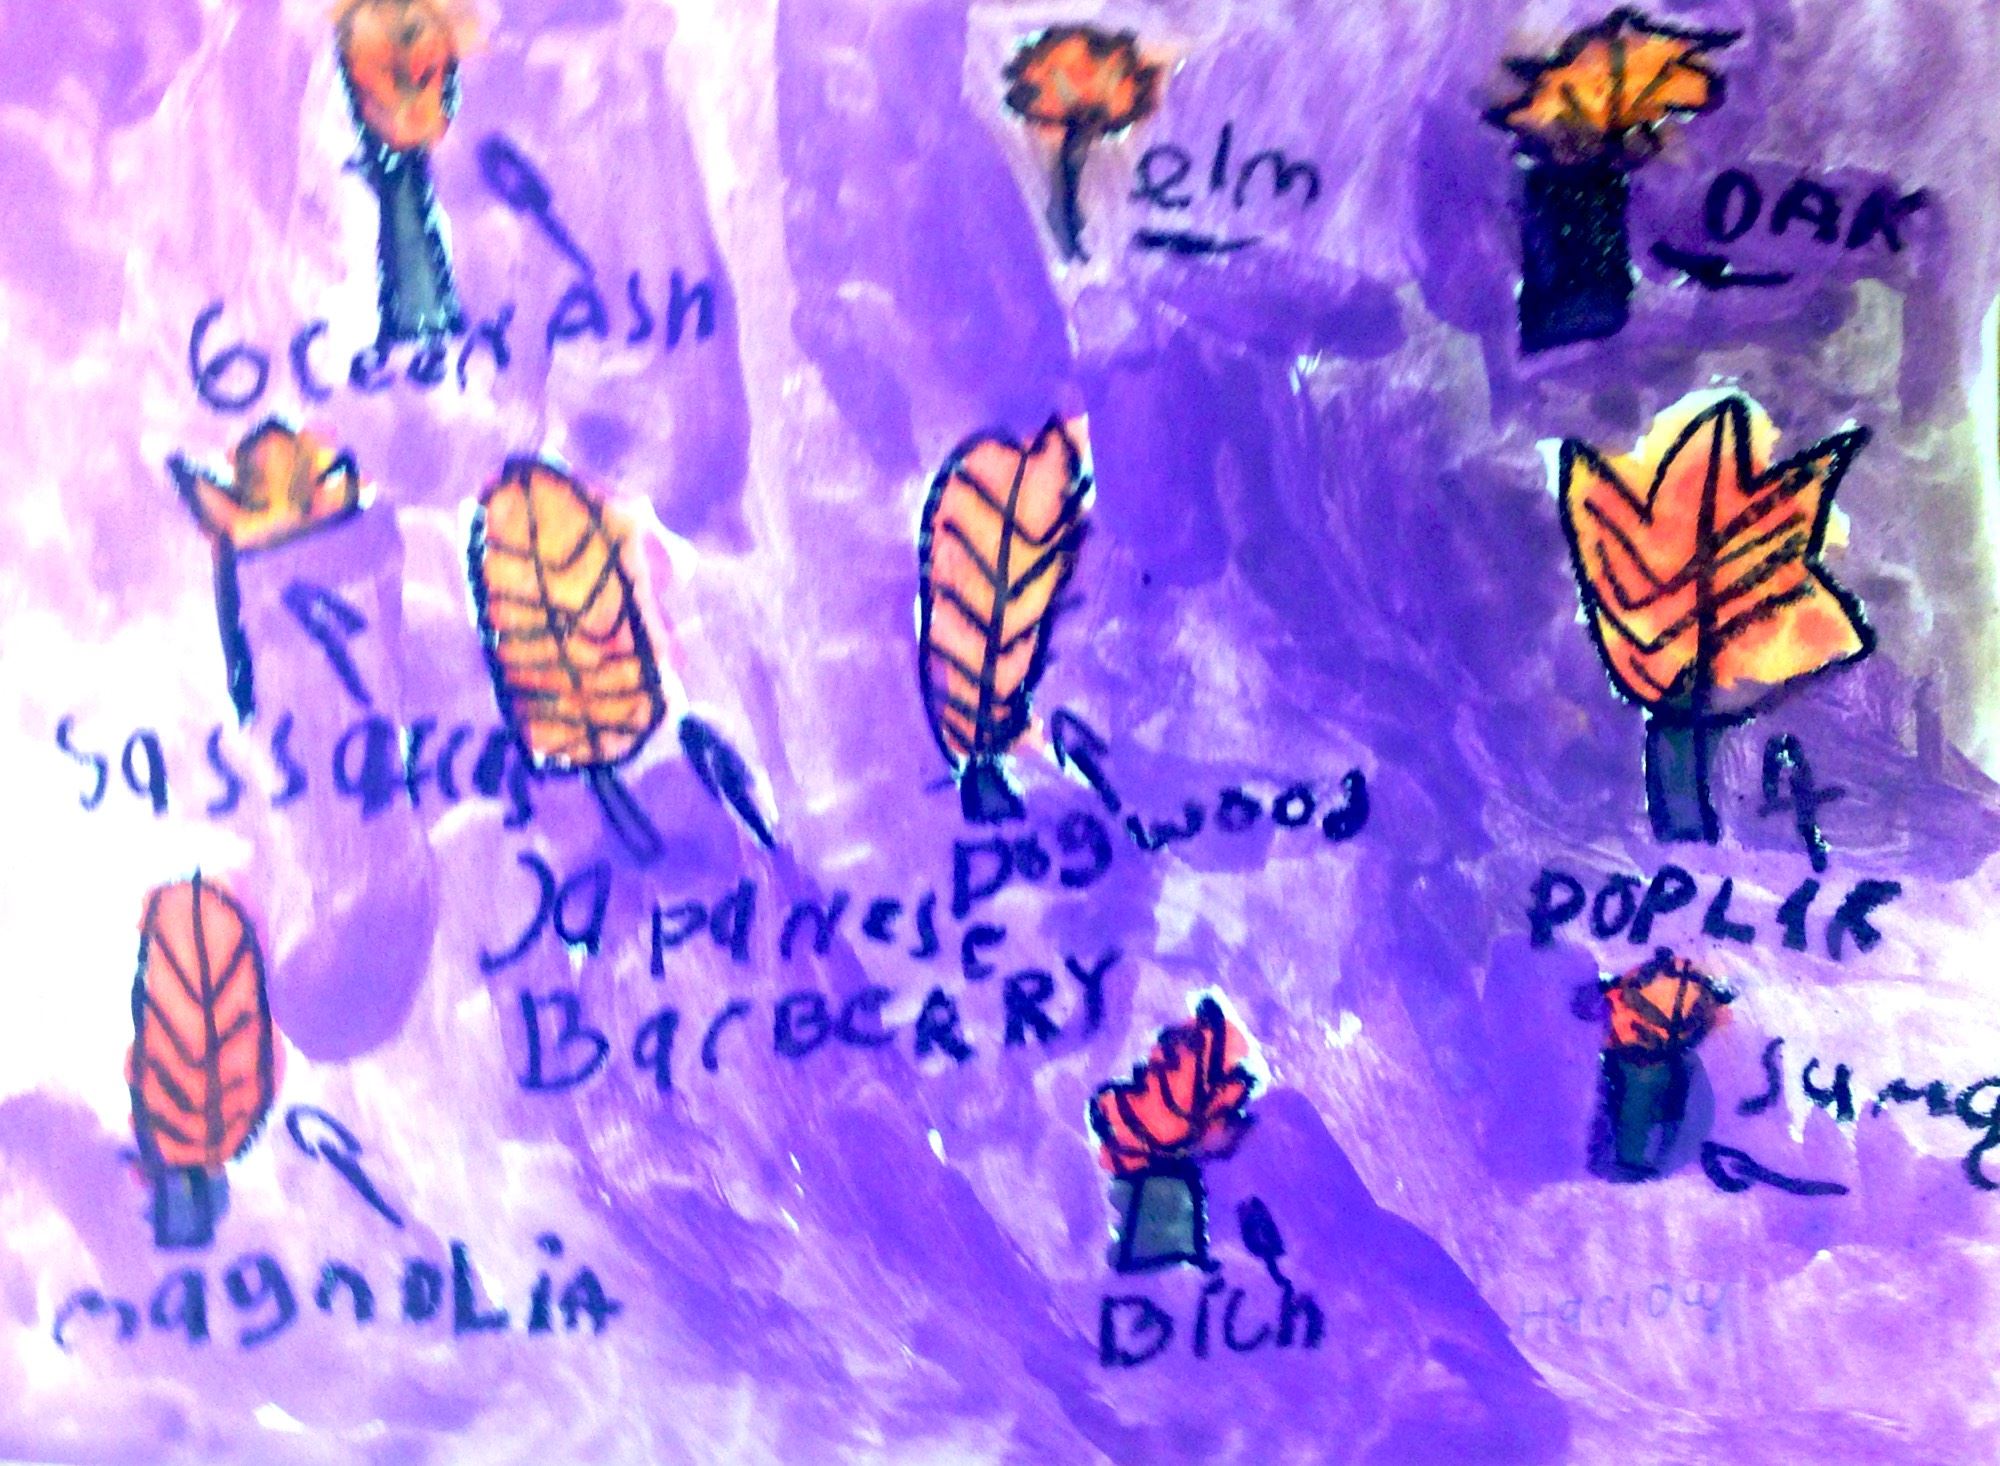 elm
OAK
Green ASh
Sassafras
Dogwood
Japanese
BarBERRY
POPLAR
magnoLiA
BiCh
Harlow